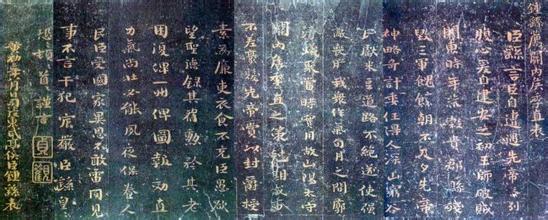 鍾繇薦關內侯季直表
臣繇言臣自遭遇先帝忝列
腹心爰自建安之初王師破賊
關東時年荒穀貴郡縣殘
毀三軍餽饟朝不及夕先帝
神略奇計委任得人深山窮谷
民獻米豆道路不絕遂使強
敵喪膽我衆作氣旬月之間廓
清蟻聚當時實用故山陽太守
關內侯季直之策剋期成事
不差豪髮先帝賞以封爵授
素為廉吏衣食不充臣愚欲
望聖德錄其舊勳矜其老
困復俾一州俾圖報效直
力氣尚壯必能夙夜保養人
民臣受國家異恩不敢雷同見
事不言干犯宸嚴臣繇皇
頓首謹言
貞觀
黃初二年八月日司徒東武亭侯臣鍾繇表